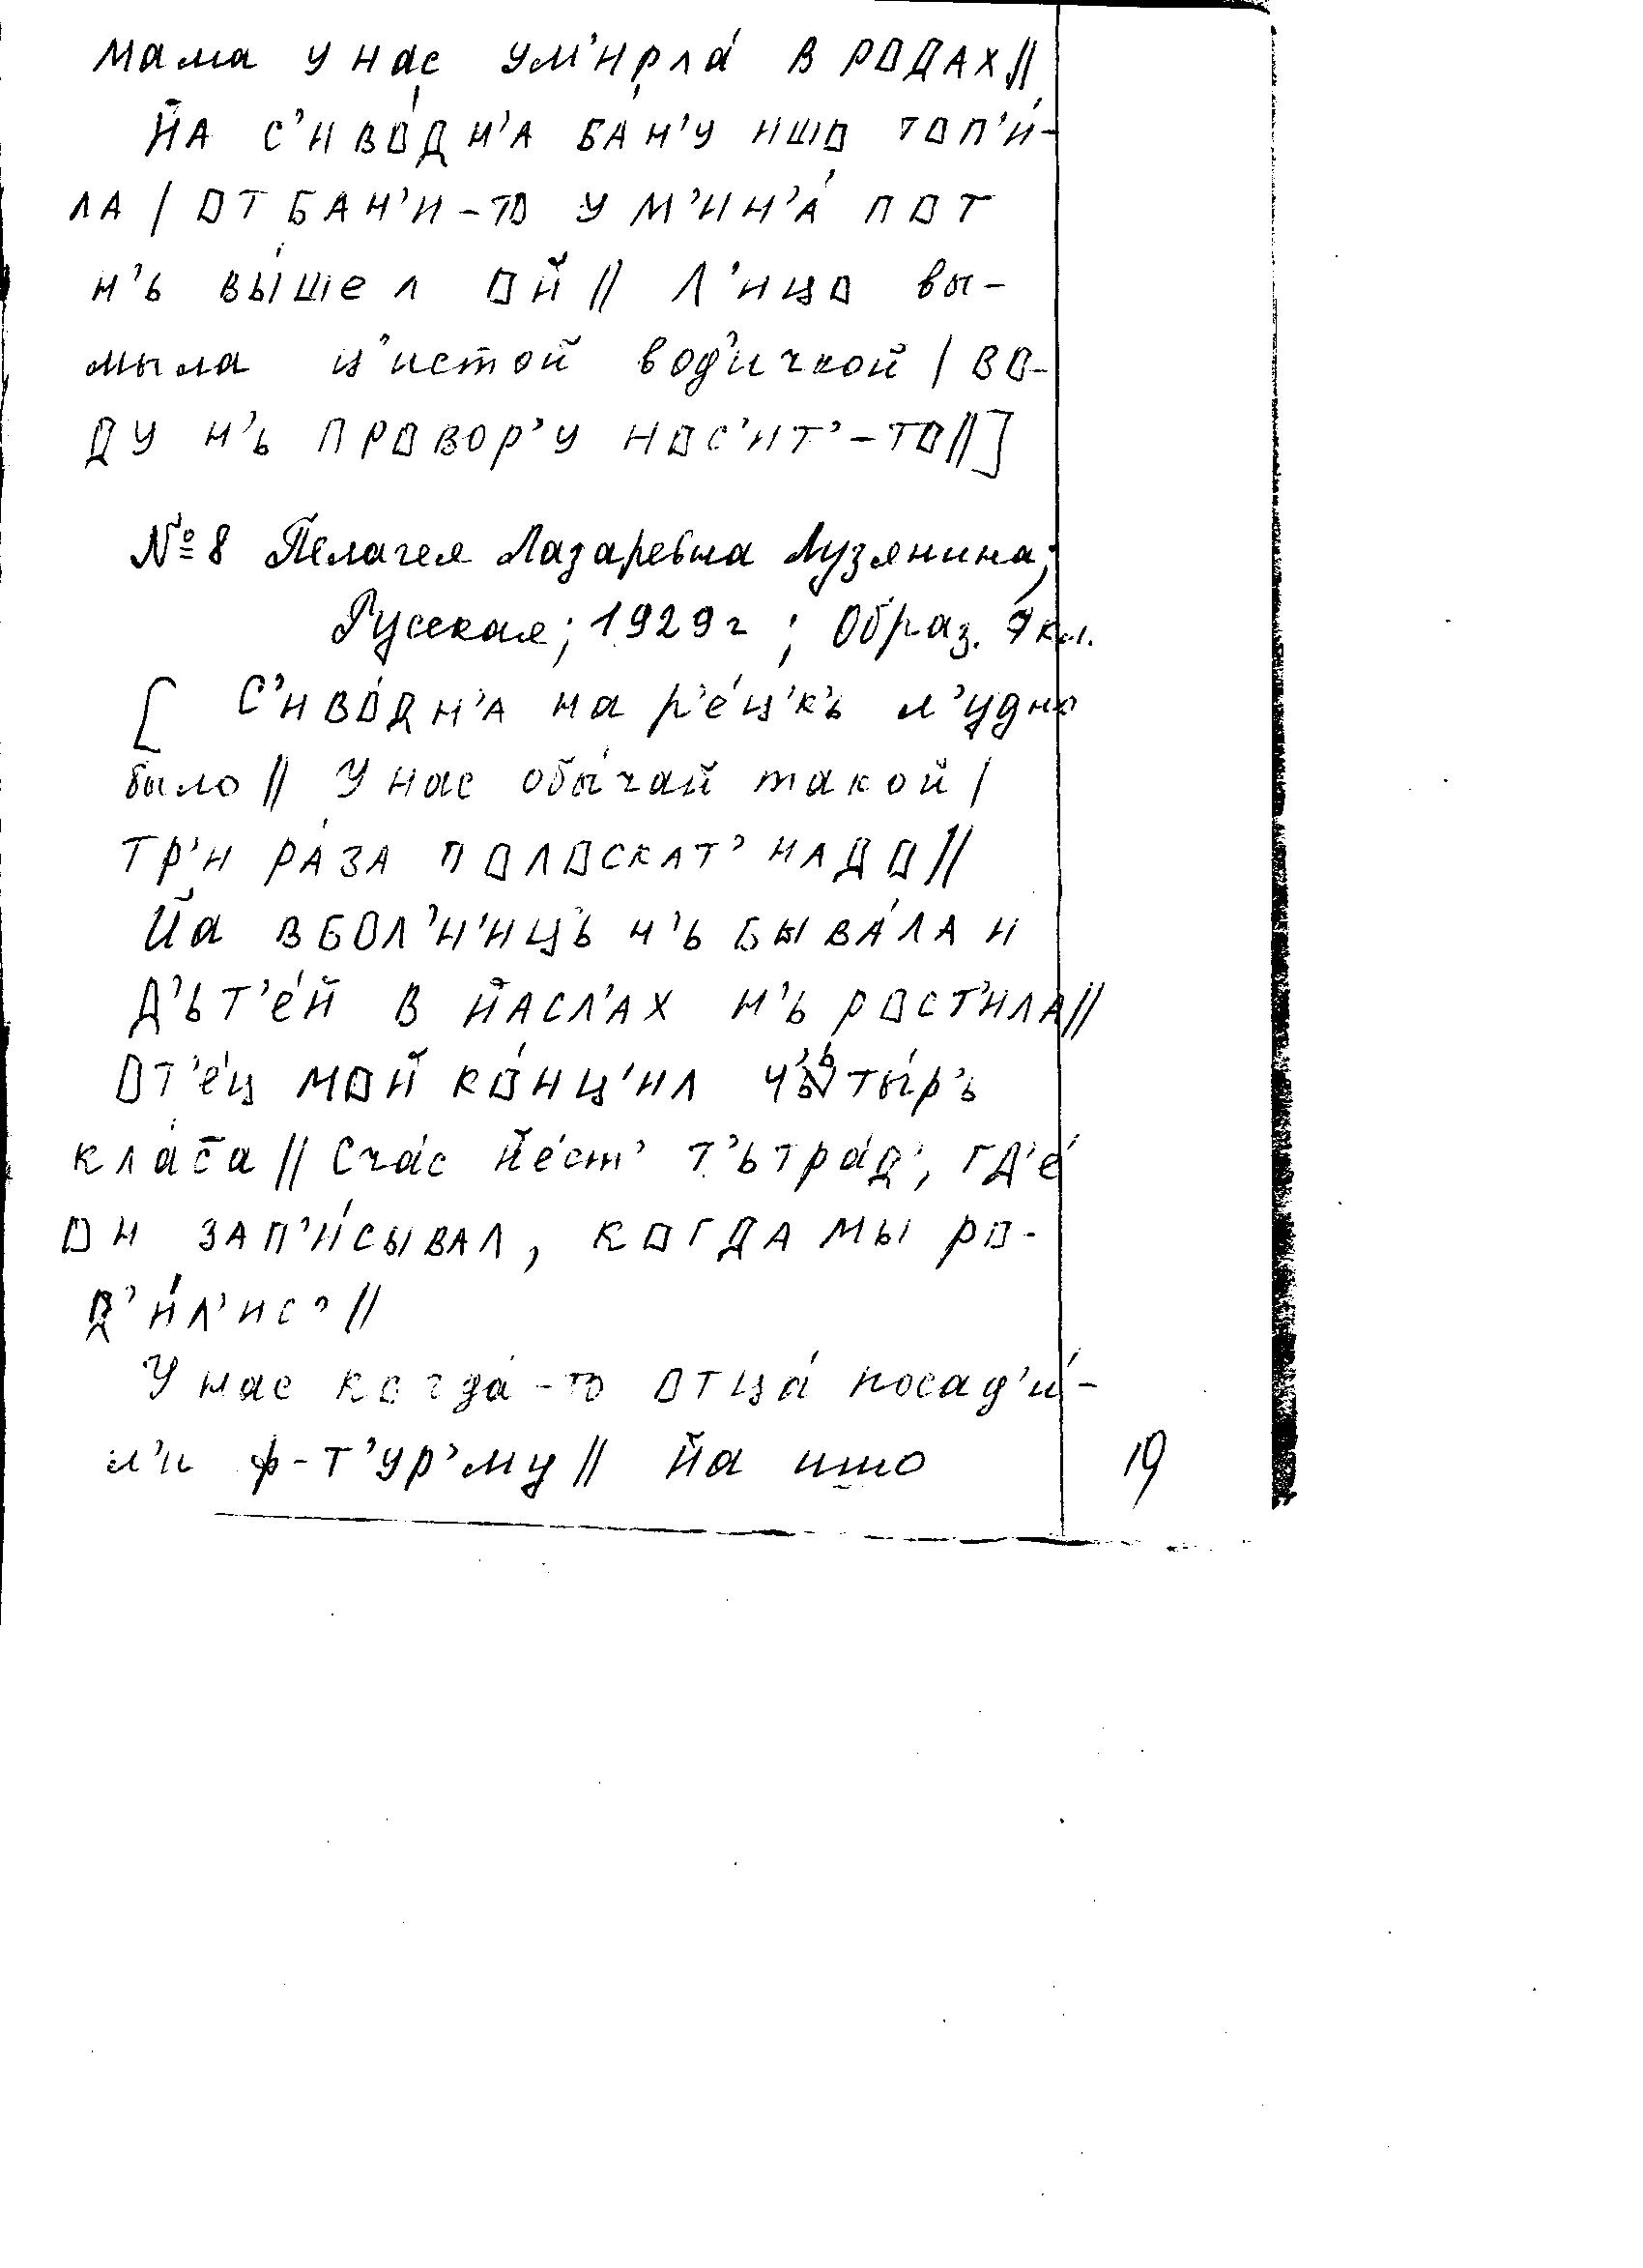 мама у нас ум'ирла́ в родах//
йа с'иво́дн'а ба́н'у ишо топ'и́-
ла / от бан'и-то у м'ин'а́ пот
н'ь вы́шел ой // л'ицо вы-
мыла ц'истой вод'ичкой / во-
ду н'ь провор'у нос'ит'-то//]
№8 Пелагея Лазаревна Лузянина;
Русская; 1929г ; Образ. 7кл.
[ С'иво́дн'а на р'е́ц'к'ь л'удно
было // У нас обы́чай такой /
тр'и ра́за полоскат' надо//
Йа в бол'н'ицъ н'ь быва́ла и
д'ьт'е́й в йасл'ах н'ь рост'ила//
От'е́ц мой ко́нц'ил ч'ьты́р'ь
кла́с̄а // Счас йе́ст' т'ьтра́д', гд'е́
он зап'и́сывал, когда мы ро-
д'и́л'ис'//
У нас когда́-то отца́ посад'и́-
л'и ф-т'ур'му// йа ишо
19